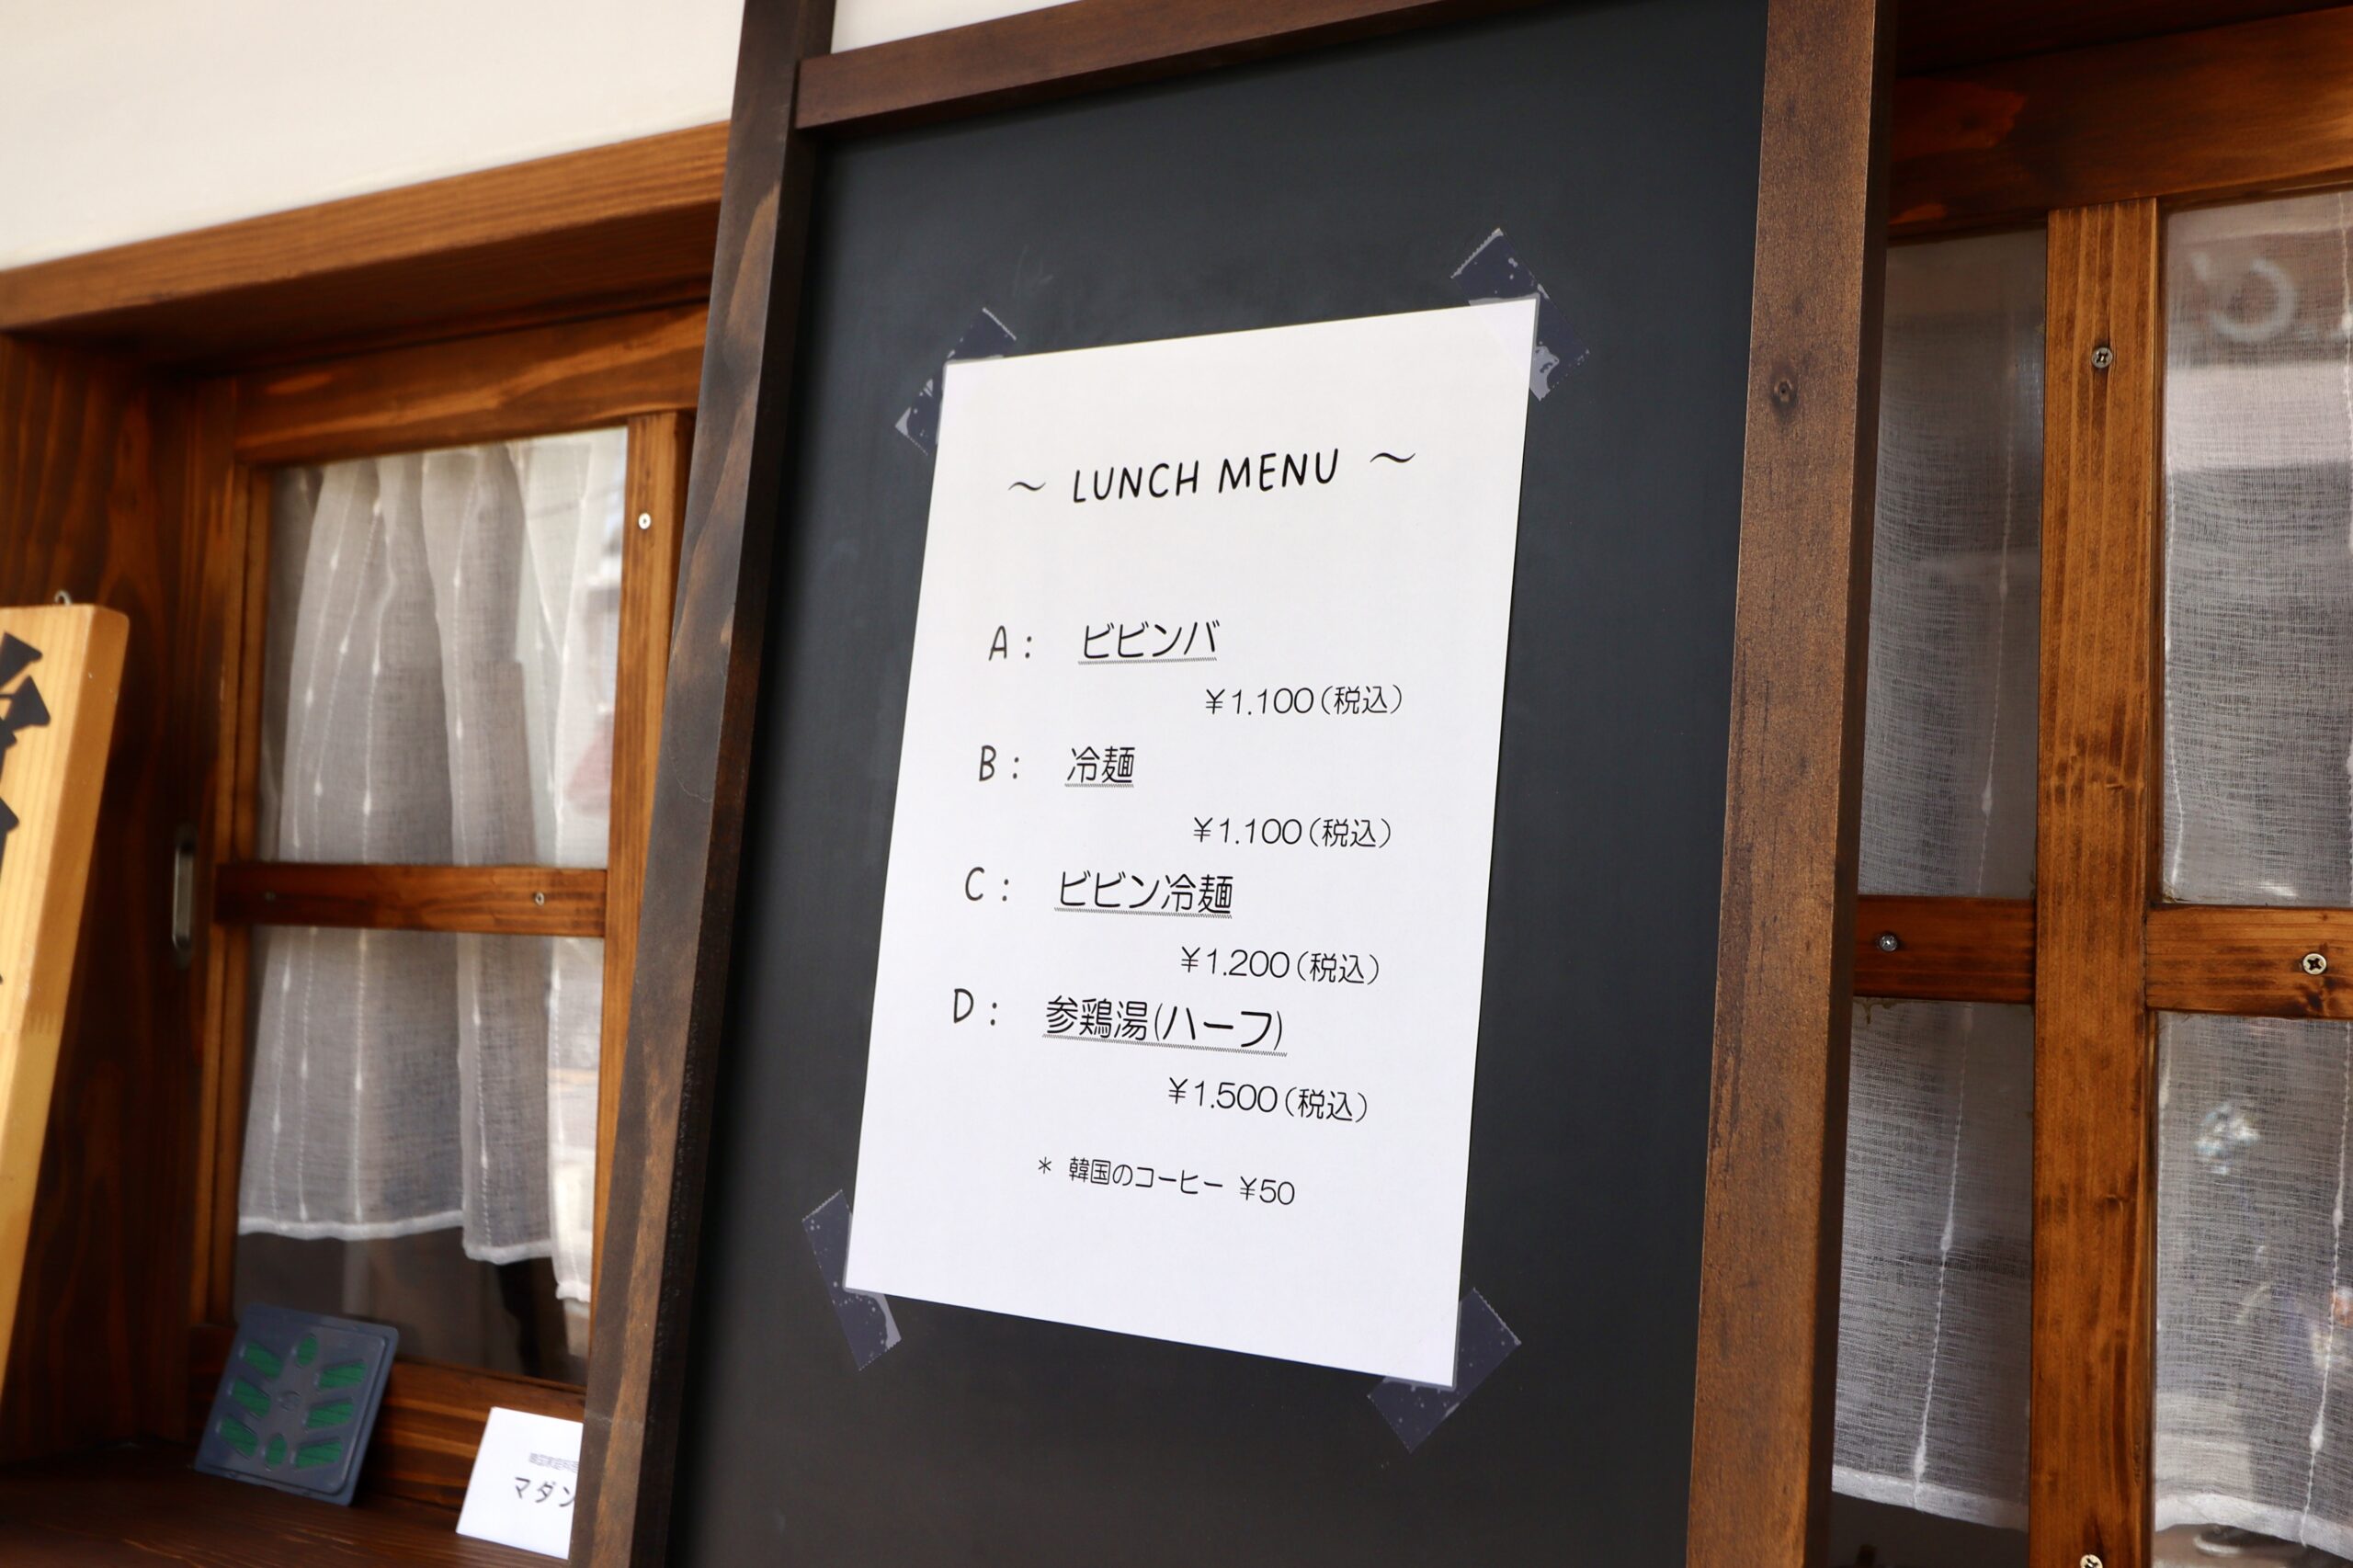 ～ LUNCH MENU ～
A： ビビンバ
￥1.100(税込)
B： 冷麺
￥1.100(税込)
C： ビビン冷麺
￥1.200(税込)
D： 参鶏湯(ハーフ)
￥1.500(税込)
＊ 韓国のコーヒー ￥50
マダン